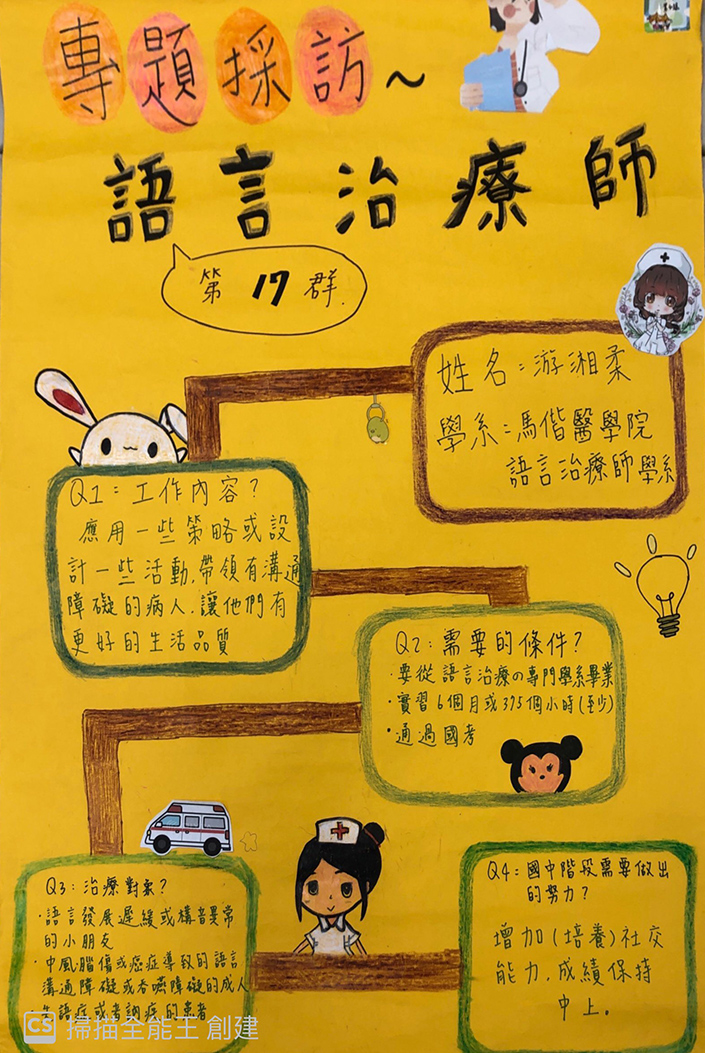 專題採訪～
語言治療師
第17群.
姓名：游湘柔
學系：馬偕醫學院
語言治療師學系
Q1：工作內容？
應用一些策略或設
計一些活動,帶領有溝通
障礙的病人.讓他們有
更好的生活品質
Q2：需要的條件？
·要從語言治療の專門學系畢業
·實習6個月或375個小時(至少)
·通過國考
Q3：治療對象？
·語言發展遲緩或構音異常
的小朋友
·中風.腦傷或癌症導致的語言
溝通障礙或吞嚥障礙的成人
·失語症或者調疾的患者
Q4：國中階段需要做出
的努力？
增加(培養)社交
能力,成績保持
中上。
CS 掃描全能王 創建